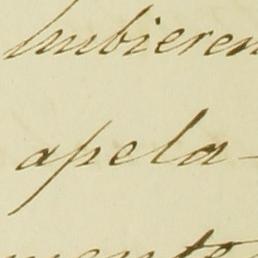 hubieren
apela-